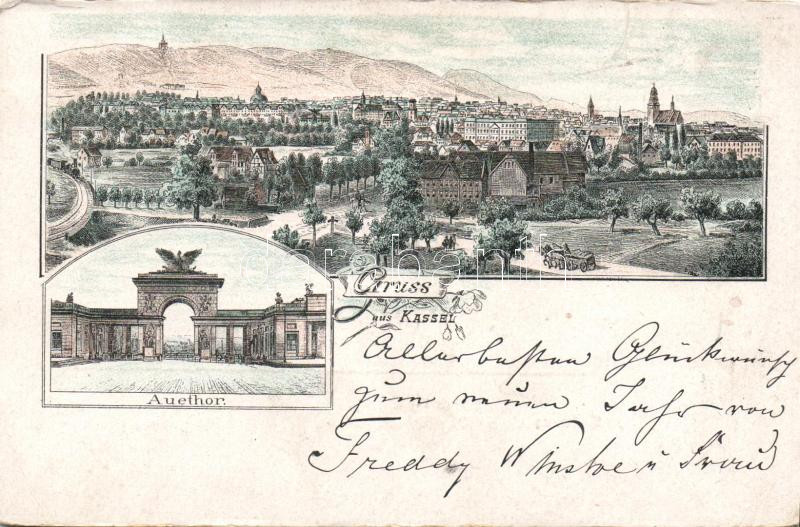 Gruss
aus KASSEL
Auethor.
Allerbesten Glückwunsch
zum neuen Jahr von
Freddy u Frau